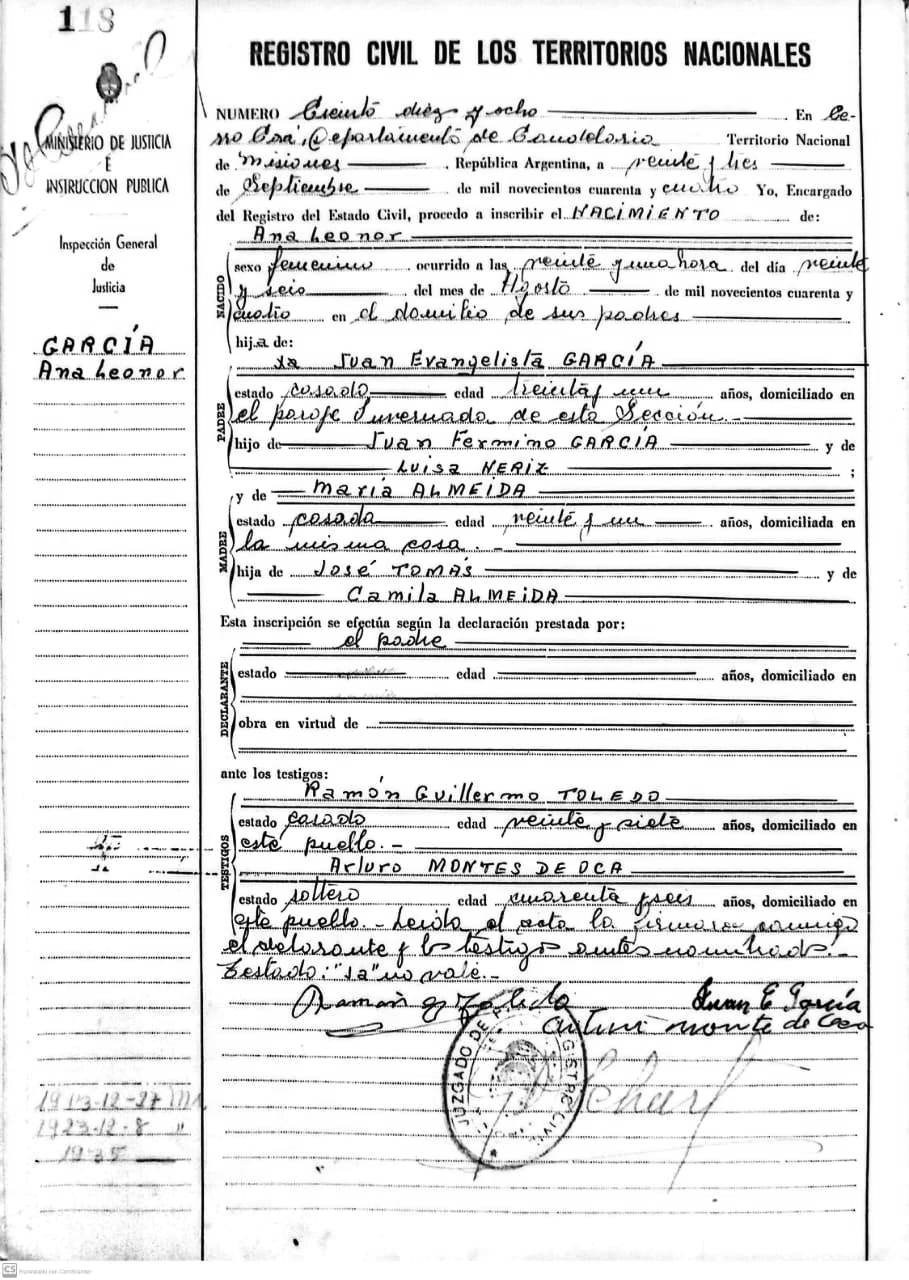 118
MINISTERIO DE JUSTICIA
E
INSTRUCCION PUBLICA
Inspección General
de
Justicia
GARCÍA
Ana Leonor
REGISTRO CIVIL DE LOS TERRITORIOS NACIONALES
NUMERO Ciento diez y ocho En Ce-
rro Corá, Departamento de Candelaria Territorio Nacional
de Misiones , República Argentina, a veinte y tres
de Septiembre de mil novecientos cuarenta y cuatro Yo, Encargado
del Registro del Estado Civil, procedo a inscribir el NACIMIENTO de:
Ana Leonor
NACIDO
sexo femenino ocurrido a las veinte y una hora del día veinte
y seis del mes de Agosto de mil novecientos cuarenta y
cuatro en el domilio de sus padres
hija de:
PADRE
Ja Juan Evangelista GARCÍA
estado casado edad treinta y un años, domiciliado en
el paraje Invernada, de esta Sección.-
hijo de Juan Fermino GARCÍA y de
Luisa NERIZ ;
MADRE
y de María ALMEIDA
estado casada edad veinte y un años, domiciliada en
la misma casa.-
hija de JOSÉ TOMÁS y de
Camila ALMEIDA
Esta inscripción se efectúa según la declaración prestada por:
el padre
DECLARANTE
estado edad años, domiciliado en
obra en virtud de
ante los testigos:
TESTIGOS
Ramón Guillermo TOLEDO
estado casado edad veinte y siete años, domiciliado en
este pueblo.-
Arturo MONTES DE OCA
estado soltero edad cuarenta y seis años, domiciliado en
este pueblo.- Leida el acta la firmaron conmigo
el declarante y los testigos antes nombrados.-
Testado: "Ja" no vale.-
Ramón G. Toledo Juan E García
Arturo monte de Oca
JUZGADO DE PAZ
REGISTRO CIVIL
1913-12-27
1923-12-8 "
1935
CS